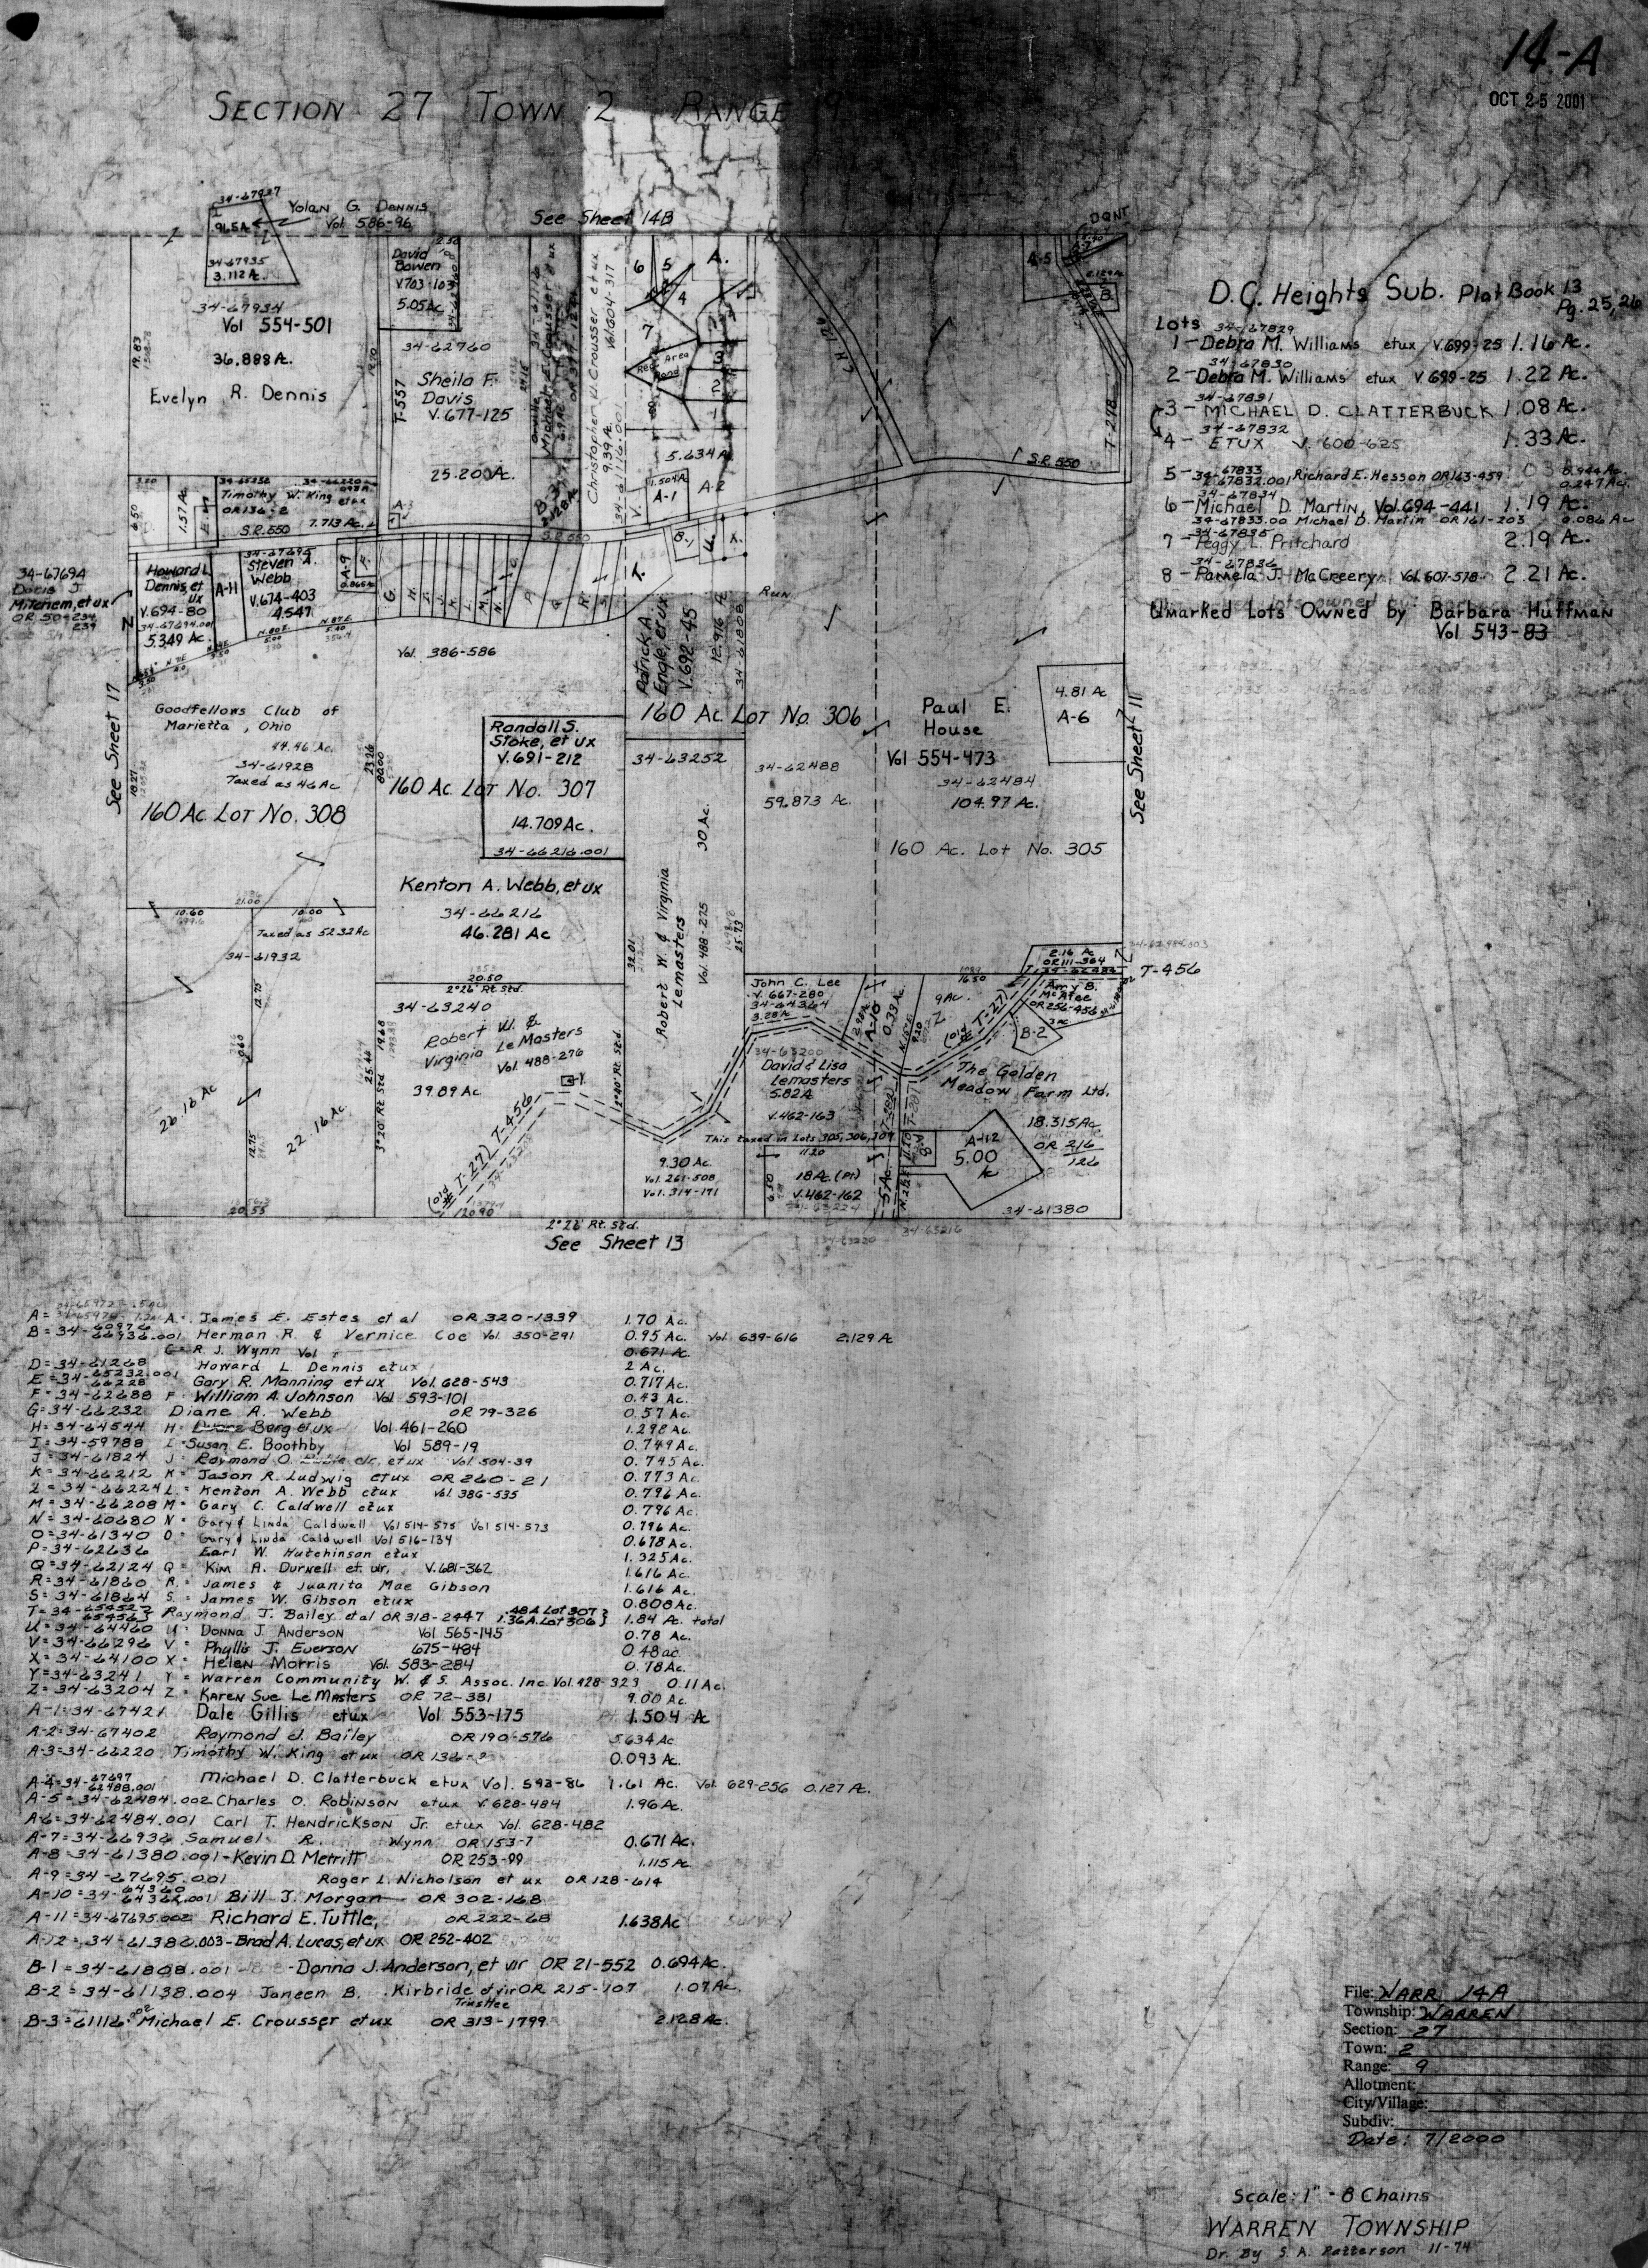 14-A
OCT 25 2001
SECTION 27 TOWN 2 RANGE
34-67937
Yolan G. Dennis
Vol. 586-96
34-67935
3.112 A.
34-67934
Vol 554-501
36.888 A.
Evelyn R. Dennis
19.83
See Sheet 14B
David Bowen
V.703-103
5.05 Ac
34-62760
Sheila F. Davis
V.677-125
25.20 Ac.
T-557
Christopher W. Crousser et ux
Vol.604-317
9.39 A.
B-3
2.128 Ac
6
5
4
A.
7
Rec. Area
Pond
3
2
1
5.634 A.
1.504 A
A-1
A-2
S.R. 550
T-278
A-5
B.
D.C. Heights Sub. Plat Book 13
Pg. 25, 26
Lots
34-67829
1 - Debra M. Williams etux V.699-25 1.16 Ac.
34-67830
2 - Debra M. Williams etux V 699-25 1.22 Ac.
34-67831
3 - MICHAEL D. CLATTERBUCK 1.08 Ac.
34-67832
4 - ETUX V. 600-625 1.33 Ac.
5 - 34-67833 Richard E. Hesson OR163-459
67832.001 0.247 Ac.
34-67834
6 - Michael D. Martin, Vol. 694-441 1.19 Ac.
34-67833.00 Michael D. Martin OR 161-203 0.086 Ac
34-67835
7 - Peggy L. Pritchard 2.19 Ac.
34-67836
8 - Pamela J. McCreery Vol. 607-578 2.21 Ac.
Unmarked Lots Owned by Barbara Huffman
Vol 543-83
1.57 Ac.
Timothy W. King etux
OR136-2
S.R. 550 7.713 Ac.
34-6769A
Mitchem, et ux
OR 50-234
239
Howard L. Dennis, et ux
V.694-80
34-67694.001
5.349 Ac.
A-11
Steven A. Webb
V.674-403
4.547
A-9
F.
G.
T.
B-1
U.
X.
Run
Vol. 386-586
See Sheet 17
Goodfellows Club of
Marietta, Ohio
44.46 Ac.
34-61928
Taxed as 46 Ac
160 Ac. LOT No. 308
Randall S. Stoke, et ux
V.691-212
160 Ac. LOT No. 307
14.709 Ac.
34-66216.001
Patrick A. Engle, et ux
V.692-45
12.976 A
34-61808
160 Ac. LOT No. 306
34-63252
34-62488
59.873 Ac.
Paul E. House
Vol 554-473
34-62484
104.97 Ac.
160 Ac. Lot No. 305
4.81 Ac
A-6
See Sheet 11
Kenton A. Webb, et ux
34-66216
46.281 Ac
Robert W. & Virginia Lemasters
Vol. 488-275
30 Ac.
32.01
25.73
21.00
10.60
10.00
Taxed as 52.32 Ac
34-61932
12.75
26.16 Ac
22.16 Ac.
12.75
20.55
20.50
2°26' Rt. Std.
34-63240
Robert W. &
Virginia LeMasters
Vol. 488-276
39.89 Ac
(old # T-27) T-456
Y
25.46
3°20' Rt. Std
2°40' Rt. Std.
9.30 Ac.
Vol. 261-508
Vol. 314-171
2°26' Rt. Std.
See Sheet 13
John C. Lee
V. 667-280
34-64364
3.28 A
34-63200
David & Lisa
Lemasters
5.82 A
V.462-163
This taxed in Lots 305, 306, 307
11.20
6.50
18 A. (Pt)
V.462-162
34-63224
5 Ac.
A-10
0.33 A.
9 Ac.
Z
(old T-27)
16.50
2.16 Ac
OR111-364
T-456
Amy B. McAtee
OR256-456
B-2
The Golden
Meadow Farm Ltd.
18.315 Ac
OR 216
126
A-8
A-12
5.00
Ac
34-61380
34-63216
A. James E. Estes et al OR 320-1339 1.70 Ac.
B=34-66936.001 Herman R. & Vernice Coe Vol. 350-291 0.95 Ac. Vol. 639-616 2.129 A
C=R J. Wynn Vol 0.671 Ac.
D=34-61268 Howard L. Dennis etux 2 Ac.
E=34-65232.001 Gary R. Manning et ux Vol. 628-543 0.717 Ac.
66228
F=34-62688 F. William A. Johnson Vol 593-101 0.43 Ac.
G=34-66232 Diane A. Webb OR 79-326 0.57 Ac.
H=34-64544 H. Berg et ux Vol. 461-260 1.298 Ac.
I=34-59788 I. Susan E. Boothby Vol 589-19 0.749 Ac.
J=34-61824 J. Raymond O. Jr. et ux Vol. 504-39 0.745 Ac.
K=34-66212 K. Jason R. Ludwig etux OR 260-21 0.773 Ac.
L=34-66224 L. Kenton A. Webb etux Vol. 386-535 0.796 Ac.
M=34-66208 M. Gary C. Caldwell etux 0.796 Ac.
N=34-60680 N. Gary & Linda Caldwell Vol 514-575 Vol 514-573 0.796 Ac.
O=34-61340 O. Gary & Linda Caldwell Vol 516-134 0.678 Ac.
P=34-62636 Earl W. Hutchinson etux 1.325 Ac.
Q=34-62124 Q. Kim A. Durnell et vir. V.681-362 1.616 Ac.
R=34-61860 R. James & Juanita Mae Gibson 1.616 Ac.
S=34-61864 S. James W. Gibson etux 0.808 Ac.
T=34-65452 Raymond J. Bailey etal OR 318-2447 .48 A. Lot 307 1.84 Ac. total
65456 1.36 A. Lot 306
U=34-64460 U. Donna J. Anderson Vol 565-145 0.78 Ac.
V=34-66296 V. Phyllis J. Everson 675-484 0.48 ac.
X=34-64100 X. Helen Morris Vol. 583-284 0.78 Ac.
Y=34-63241 Y = Warren Community W. & S. Assoc. Inc. Vol. 428-323 0.11 Ac.
Z=34-63204 Z. Karen Sue LeMasters OR 72-331 9.00 Ac
A-1=34-67421 Dale Gillis etux Vol 553-175 1.504 A
A-2=34-67402 Raymond J. Bailey OR190-576 5.634 Ac
A-3=34-66220 Timothy W. King et ux OR 136-2 0.093 Ac.
A-4=34-67697 Michael D. Clatterbuck etux Vol. 593-86 1.61 Ac. Vol. 629-256 0.127 A.
62488.001
A-5=34-62484.002 Charles O. Robinson etux V. 628-484 1.96 Ac.
A-6=34-62484.001 Carl T. Hendrickson Jr. etux Vol. 628-482
A-7=34-66936 Samuel R. Wynn OR 153-7 0.671 Ac.
A-8=34-61380.001-Kevin D. Merritt OR 253-99 1.115 Ac.
A-9=34-67695.001 Roger L. Nicholson et ux OR128-614
A-10=34-64360 Bill J. Morgan OR 302-168
64362.001
A-11=34-67695.002 Richard E. Tuttle, OR 222-68 1.638 Ac
A-12=34-61380.003-Brad A. Lucas, et ux OR 252-402
B-1=34-61808.001 -Donna J. Anderson, et vir OR 21-552 0.694 Ac.
B-2=34-61138.004 Janeen B. Kirbride et vir OR 215-107 1.07 Ac.
Trustee
B-3=61116.002 Michael E. Crousser etux OR 313-1799 2.128 Ac.
File: WARR 14A
Township: WARREN
Section: 27
Town: 2
Range: 9
Allotment:
City/Village:
Subdiv:
Date: 7/2000
Scale: 1" = 8 Chains
WARREN TOWNSHIP
Dr. By S. A. Patterson 11-74